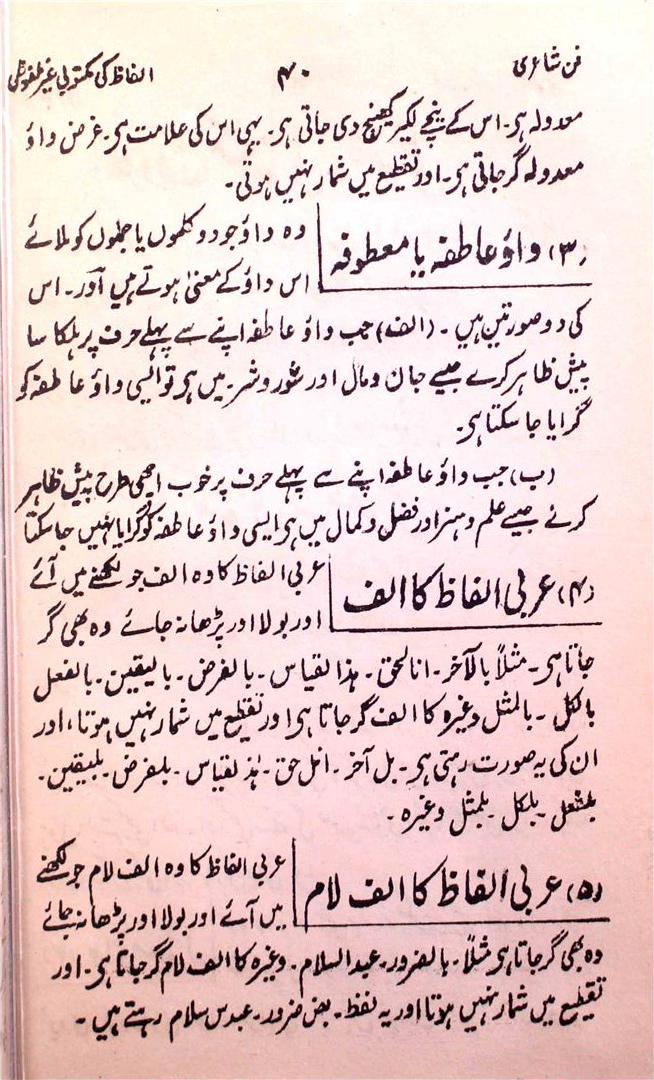 فن شاعری ۴۰ الفاظ کی مکتوبی غیر ملفوظی
معدولہ ہر۔ اس کے نیچے لکیر کھینچ دی جاتی ہر۔ یہی اس کی علامت ہر۔ غرض واؤ
معدولہ گر جاتی ہر۔ اور تقطیع میں شمار نہیں ہوتی۔
(۳) واؤ عاطفہ یا معطوفہ
وہ واؤ جو دو کلموں یا جملوں کو ملائے
اس واؤ کے معنیٰ ہوتے ہیں اَور۔ اس
کی دو صورتین ہیں۔ (الف) جب واؤ عاطفہ اپنے سے پہلے حرف پر ہلکا سا
پیش ظاہر کرے جیسے جان و مال اور شور و شر۔ میں ہر تو ایسی واؤ عاطفہ کو
گرایا جا سکتا ہر۔
(ب) جب واؤ عاطفہ اپنے سے پہلے حرف پر خوب اچھی طرح پیش ظاہر
کرنے جیسے علم و ہنر اور فضل و کمال میں ہر ایسی واؤ عاطفہ کو گرایا نہیں جا سکتا
(۴) عربی الفاظ کا الف
عربی الفاظ کا وہ الف جو لکھنے میں آئے
اور بولا اور پڑھا نہ جائے وہ بھی گر
جاتا ہر۔ مثلاً بالآخر۔ انا الحق۔ ہذا لقیاس۔ بالغرض۔ بالیقین۔ بالفعل
بالکل۔ بالمثل وغیرہ کا الف گر جاتا ہر اور تقطیع میں شمار نہیں ہوتا، اور
ان کی یہ صورت رہتی ہر۔ بل آخر۔ انل حق۔ ہٰذ لقیاس۔ بلغرض۔ بلیقین۔
بلفعل۔ بلکل۔ بلمثل وغیرہ۔
(۵) عربی الفاظ کا الف لام
عربی الفاظ کا وہ الف لام جو لکھنے
میں آئے اور بولا اور پڑھا نہ جائے
وہ بھی گر جاتا ہر مثلاً۔ بالضرور۔ عبد السلام۔ وغیرہ کا الف لام گر جاتا ہر۔ اور
تقطیع میں شمار نہیں ہوتا اور یہ لفظ۔ بض ضرور۔ عبدس سلام رہتے ہیں۔